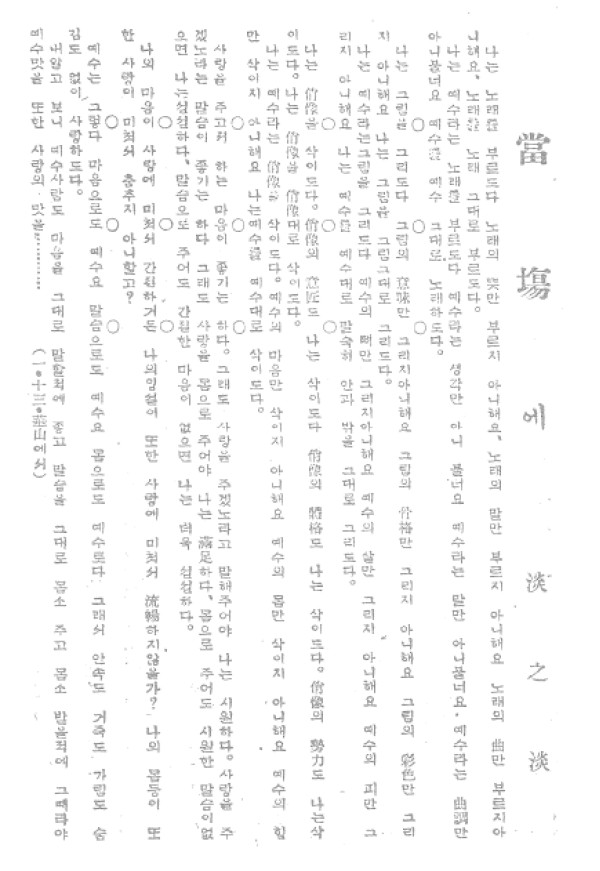 當場에
淡之淡
나는 노래를 부르도다 노래의 뜻만 부르지 아니해요、노래의 말만 부르지 아니해요 노래의 曲만 부르지아
니해요、노래를 노래 그대로 부르도다。
나는 예수라는 노래를 부르도다 예수라는 생각만 아니 불너요 예수라는 말만 아니불너요・예수라는 曲調만
아니불너요 예수를 예수 그대로 노래하도다。
○ ○ ○
나는 그림을 그리도다 그림의 意味만 그리지아니해요 그림의 骨格만 그리지 아니해요 그림의 彩色만 그리
지 아니해요 나는 그림을 그림그대로 그리도다。
나는 예수라는그림을 그리도다 예수의 뼈만 그리지아니해요 예수의 살만 그리지 아니해요 예수의 피만 그
리지 아니해요 나는 예수를 예수대로 말숙해 안과 밖을 그대로 그리도다。
○ ○ ○
나는 偕像을 삭이도다。偕像의 意匠도 나는 삭이도다 偕像의 體格도 나는 삭이도다。偕像의 勢力도 나는삭
이도다。나는 偕像을 偕像대로 삭이도다。
나는 예수라는 偕像을 삭이도다。예수의 마음만 삭이지 아니해요 예수의 몸만 삭이지 아니해요 예수의 힘
만 삭이지 아니해요 나는예수를 예수대로 삭이도다。
○ ○ ○
사랑을 주고저 하는 마음이 좋기는 하다。그래도 사랑을 주겠노라고 말해주어야 나는 시원하다。사랑을 주
겠노라는 말슴이 좋기는 하다 그래도 사랑을 몸으로 주어야 나는 滿足하다、몸으로 주어도 시원한 말슴이없
으면 나는섭섭하다、말슴으로 주어도 간절한 마음이 없으면 나는 더욱 섭섭하다。
○ ○ ○
나의 마음이 사랑에 미쳐서 간절하거든 나의입설이 또한 사랑에 미쳐서 流暢하지않을가? 나의 몸둥이 또
한 사랑이 미쳐서 춤추지 아니할고?
○ ○ ○
예수는 그렇다 마음으로도 예수요 말슴으로도 예수요 몸으로도 예수로다 그래서 안속도 거죽도 가림도 숨
김도 없이 사랑하도다。
내알고 보니 예수사랑도 마음을 그대로 말할적에 좋고 말슴을 그대로 몸소 주고 몸소 받을적에 그때라야
예수맛을 또한 사랑의 맛을…………
(一・十三・釜山에서)